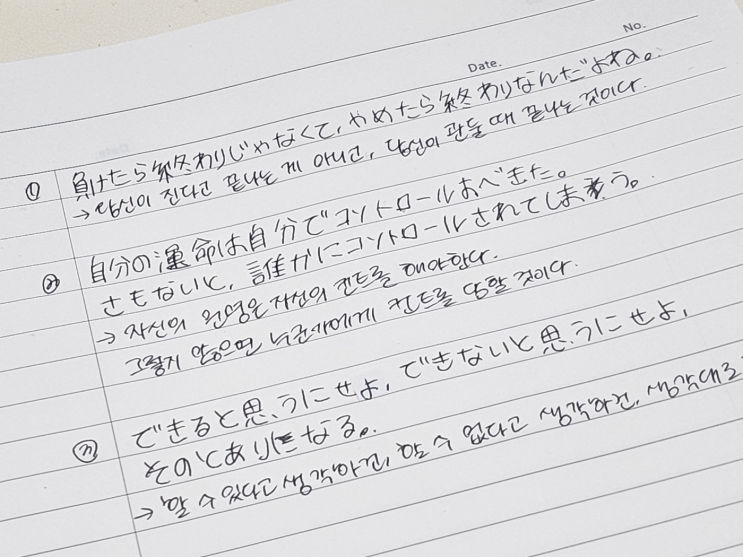 No.
Date.
① 負けたら終わりじゃなくて、やめたら終わりなんだよね。
→ 당신이 진다고 끝나는 게 아니고, 당신이 관둘 때 끝나는 것이다.
② 自分の運命は自分でコントロールおべきた。
さもないと、誰かにコントロールされてしまう。
→ 자신의 원영은 자신의 컨트롤 해야한다.
그렇지 않으면 누군가에게 컨트롤 당할 것이다.
③ できると思うにせよ、できないと思うにせよ、
そのとありになる。
→ 할 수 있다고 생각하건, 할 수 없다고 생각하건, 생각대로